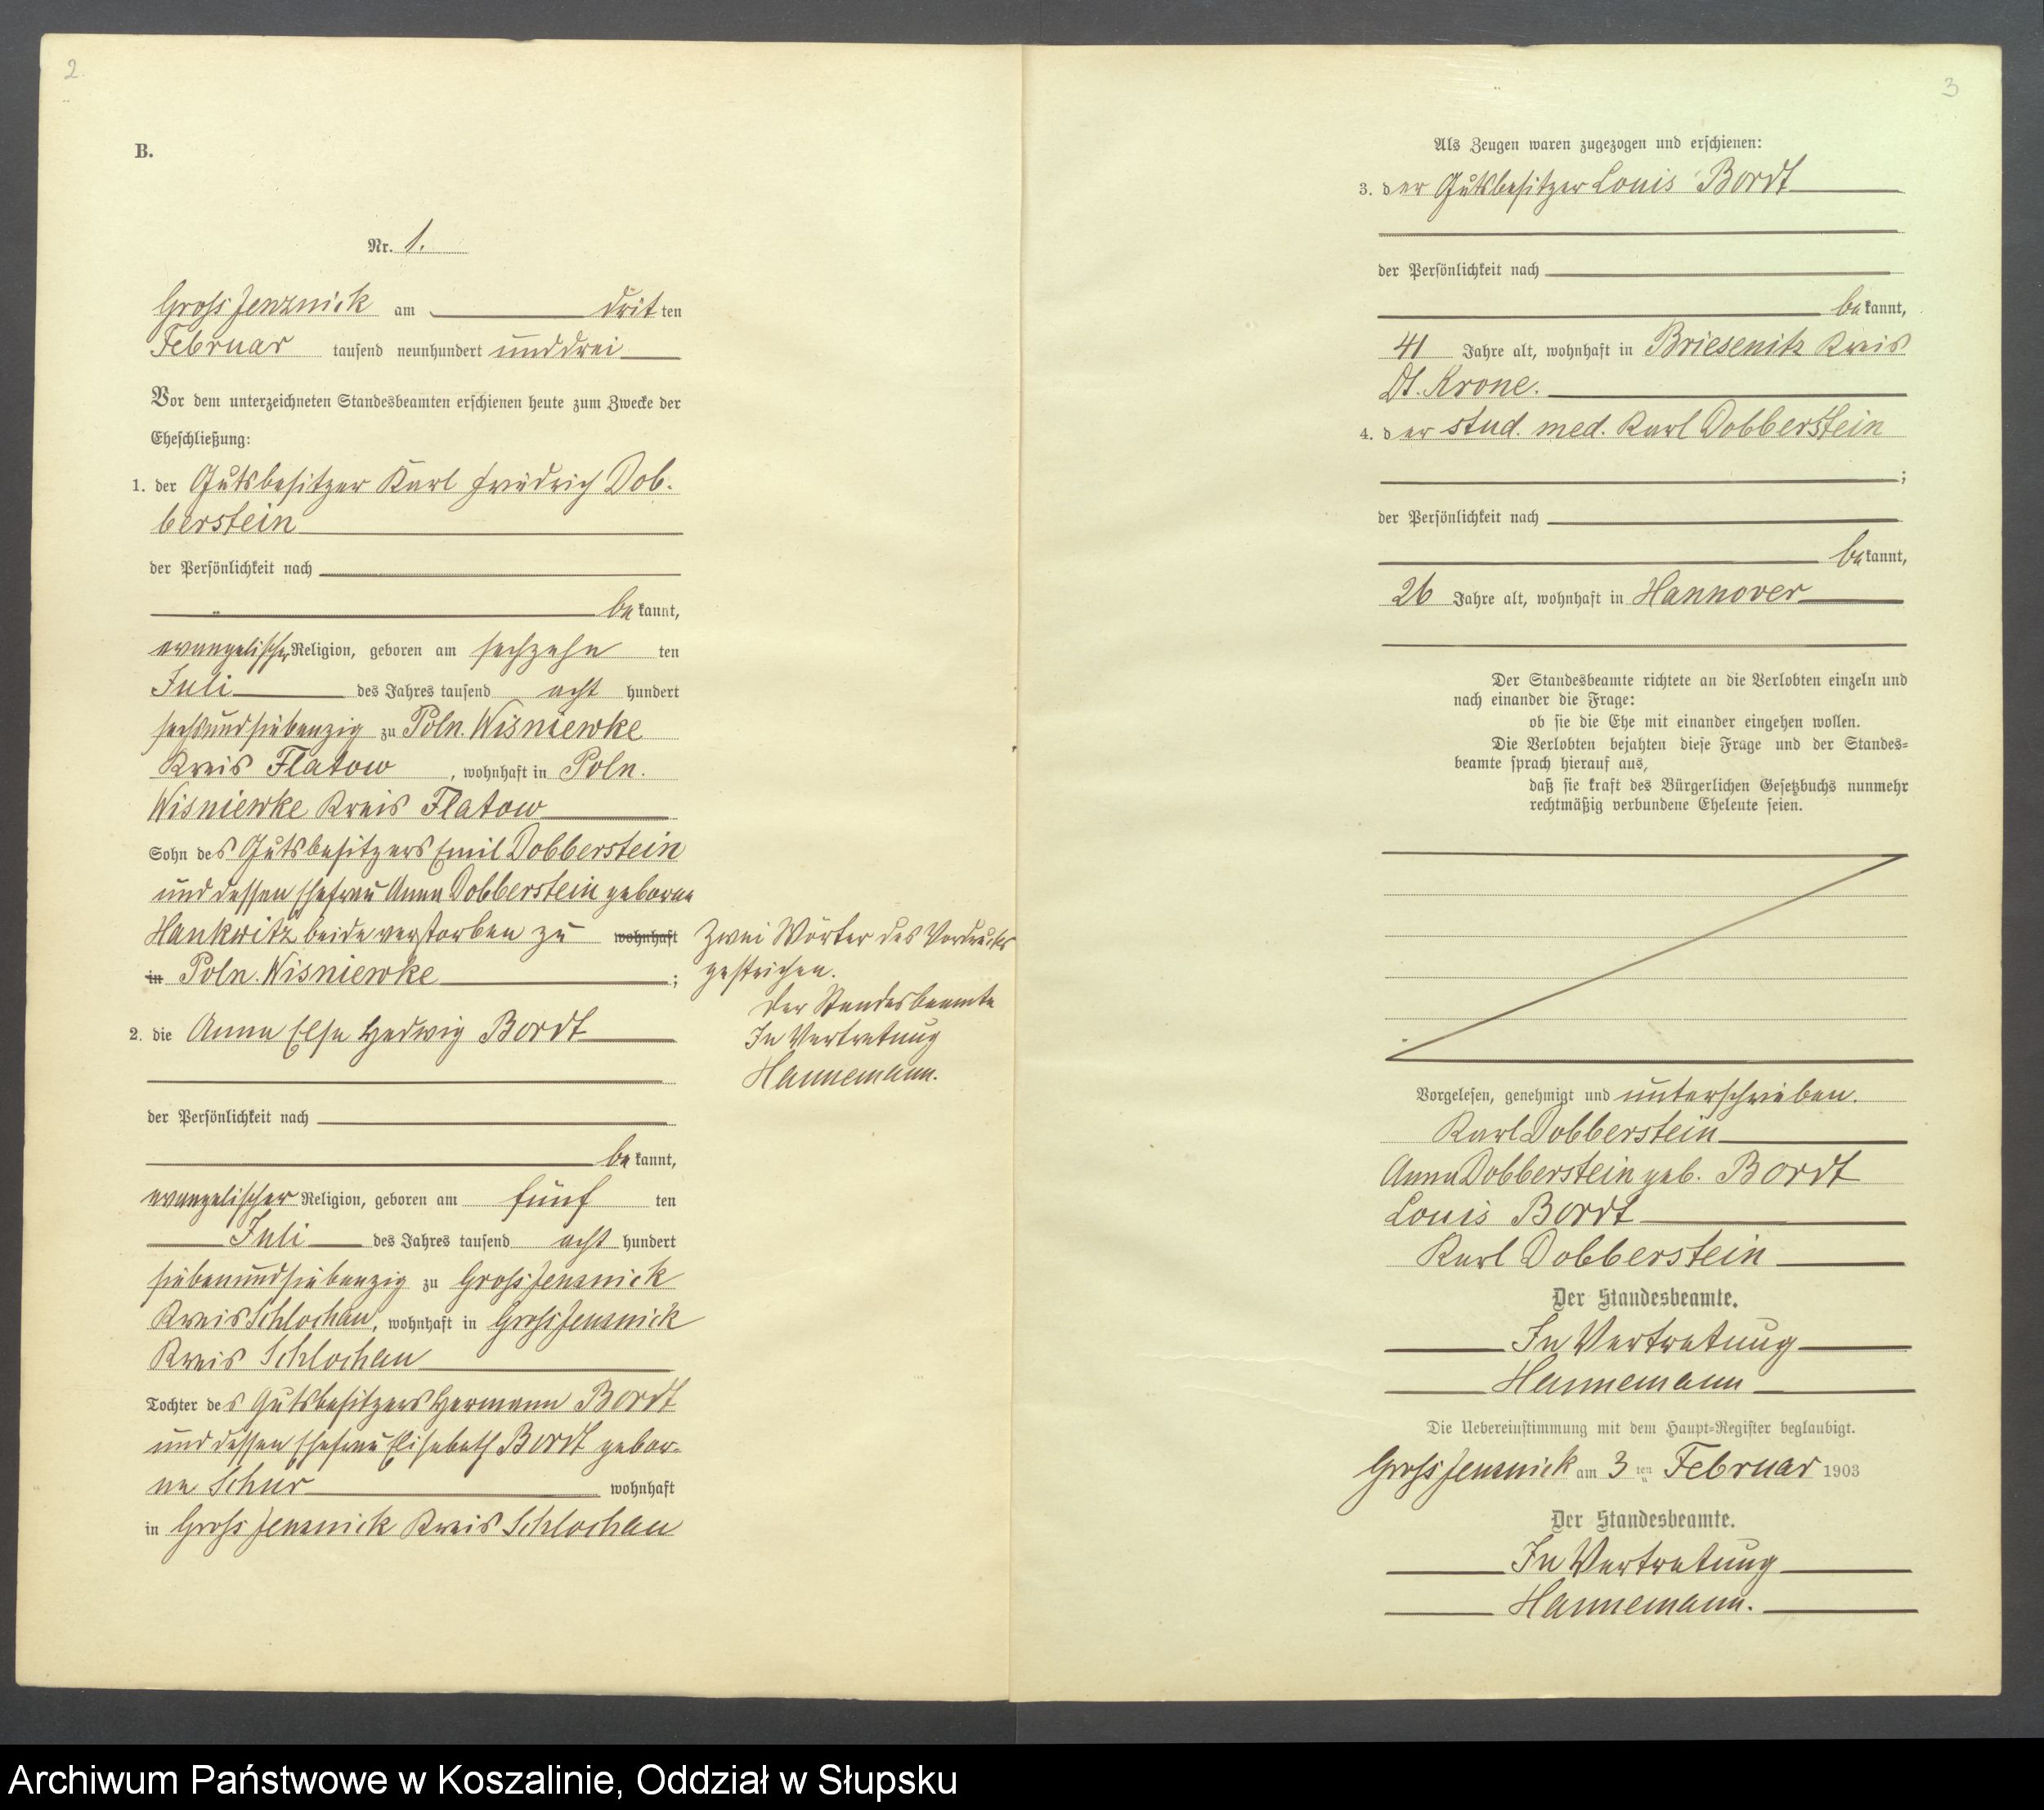 2
B.
Nr. 1.
Gross Jenznick am dritten
Februar tausend neunhundert und drei
Vor dem unterzeichneten Standesbeamten erschienen heute zum Zwecke der
Eheschließung:
1. der Gutsbesitzer Karl Friedrich Dob-
berstein
der Persönlichkeit nach
bekannt,
evangelischer Religion, geboren am sechzehnten
Juli des Jahres tausend acht hundert
sechsundsiebenzig zu Poln. Wisniewke
Kreis Flatow, wohnhaft in Poln.
Wisniewke Kreis Flatow
Sohn des Gutsbesitzers Emil Dobberstein
und dessen Ehefrau Anna Dobberstein geborne
Hankwitz beide verstorben zu wohnhaft
in Poln. Wisniewke;
Zwei Wörter des Vordrucks
gestrichen.
Der Standesbeamte
In Vertretung
Hannemann.
2. die Anna Else Hedwig Bordt
der Persönlichkeit nach
bekannt,
evangelischer Religion, geboren am fünften
Juli des Jahres tausend acht hundert
siebenundsiebenzig zu Gross Jenznick
Kreis Schlochau, wohnhaft in Gross Jenznick
Kreis Schlochau
Tochter des Gutsbesitzers Hermann Bordt
und dessen Ehefrau Elisabeth Bordt gebor-
ne Schur wohnhaft
in Gross Jenznick Kreis Schlochau
3
Als Zeugen waren zugezogen und erschienen:
3. der Gutsbesitzer Louis Bordt
der Persönlichkeit nach
bekannt,
41 Jahre alt, wohnhaft in Briesenitz Kreis
Dt. Krone.
4. der stud. med. Karl Dobberstein
;
der Persönlichkeit nach
bekannt,
26 Jahre alt, wohnhaft in Hannover
Der Standesbeamte richtete an die Verlobten einzeln und
nach einander die Frage:
ob sie die Ehe mit einander eingehen wollen.
Die Verlobten bejahten diese Frage und der Standes-
beamte sprach hierauf aus,
daß sie kraft des Bürgerlichen Gesetzbuchs nunmehr
rechtmäßig verbundene Eheleute seien.
Vorgelesen, genehmigt und unterschrieben.
Karl Dobberstein
Anna Dobberstein geb. Bordt
Louis Bordt
Karl Dobberstein
Der Standesbeamte.
In Vertretung
Hannemann
Die Uebereinstimmung mit dem Haupt-Register beglaubigt.
Gross Jenznick am 3ten Februar 1903
Der Standesbeamte.
In Vertretung
Hannemann.
Archiwum Państwowe w Koszalinie, Oddział w Słupsku